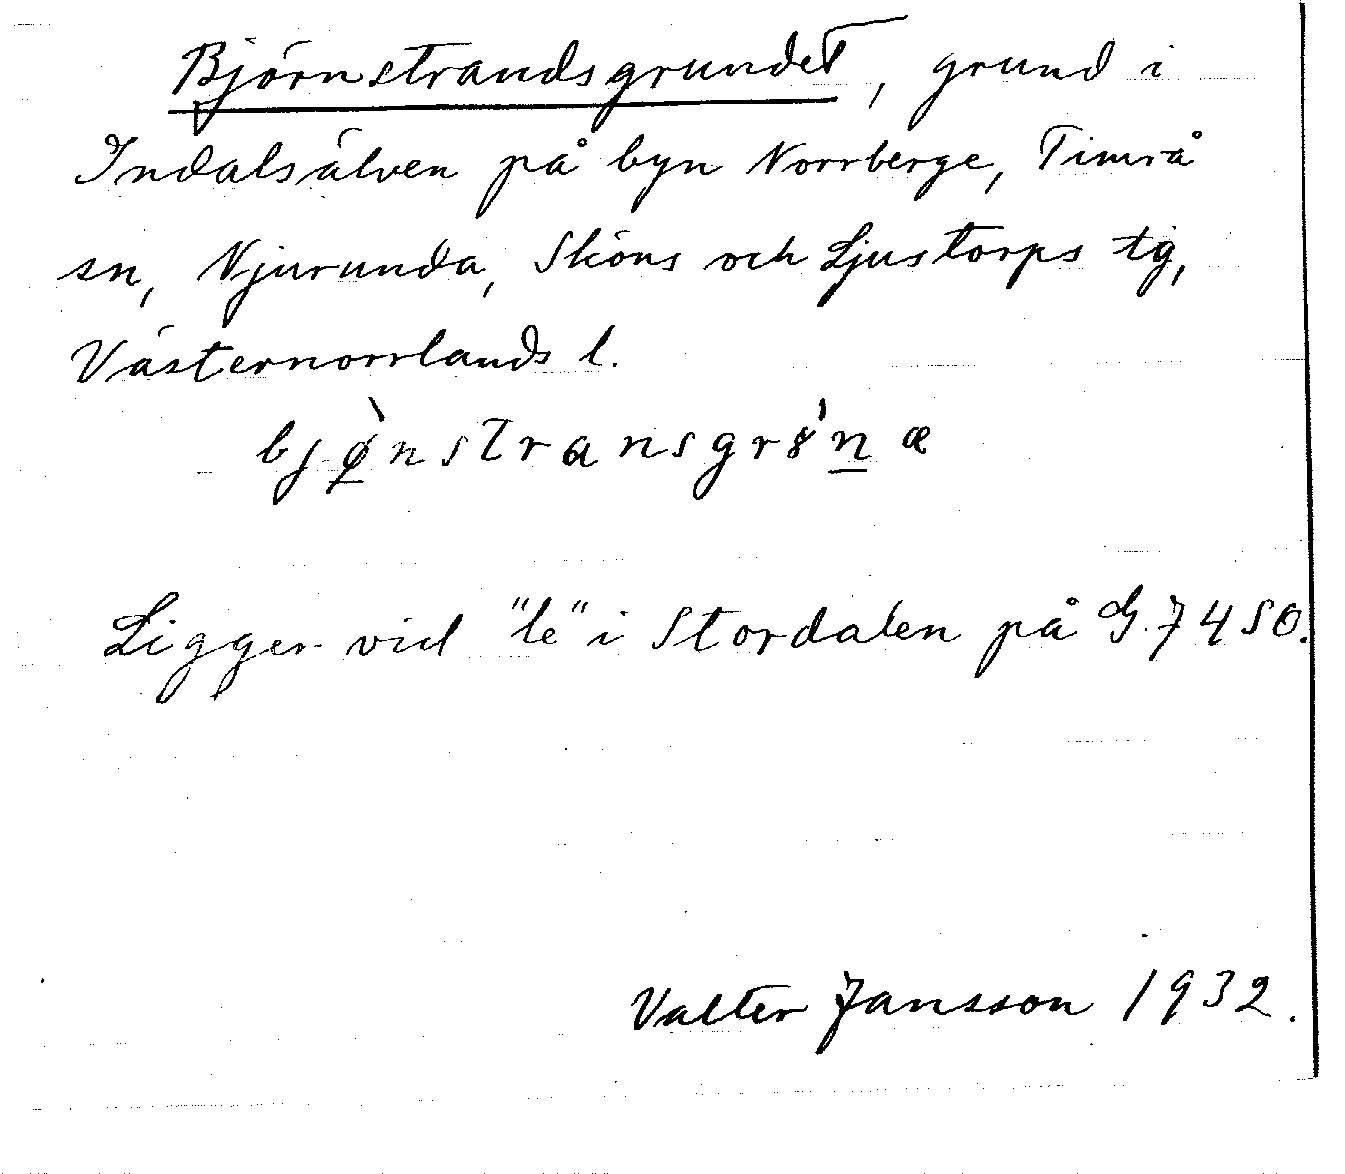 Björnstrandsgrundet, grund i
Indalsälven på byn Norrberge, Timrå
sn, Njurunda, Sköns och Ljustorps tg,
Västernorrlands l.
bjø̀nstransgr8́n̲æ
Ligger vid "le" i Stordalen på G. 7450.
Valter Jansson 1932.